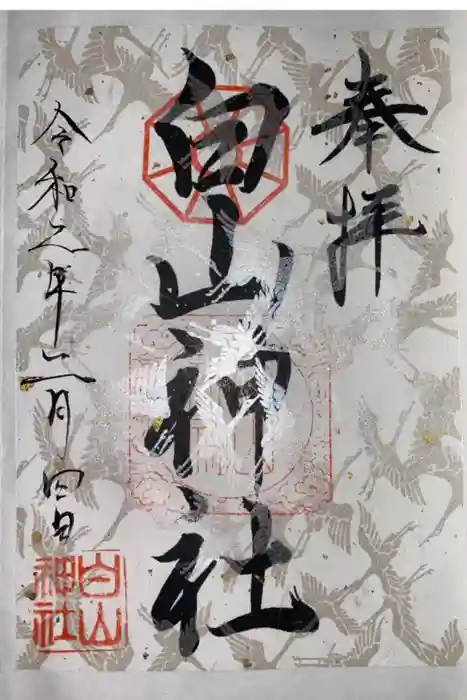 奉拝
白山神社
令和元年六月四日
白山
神社